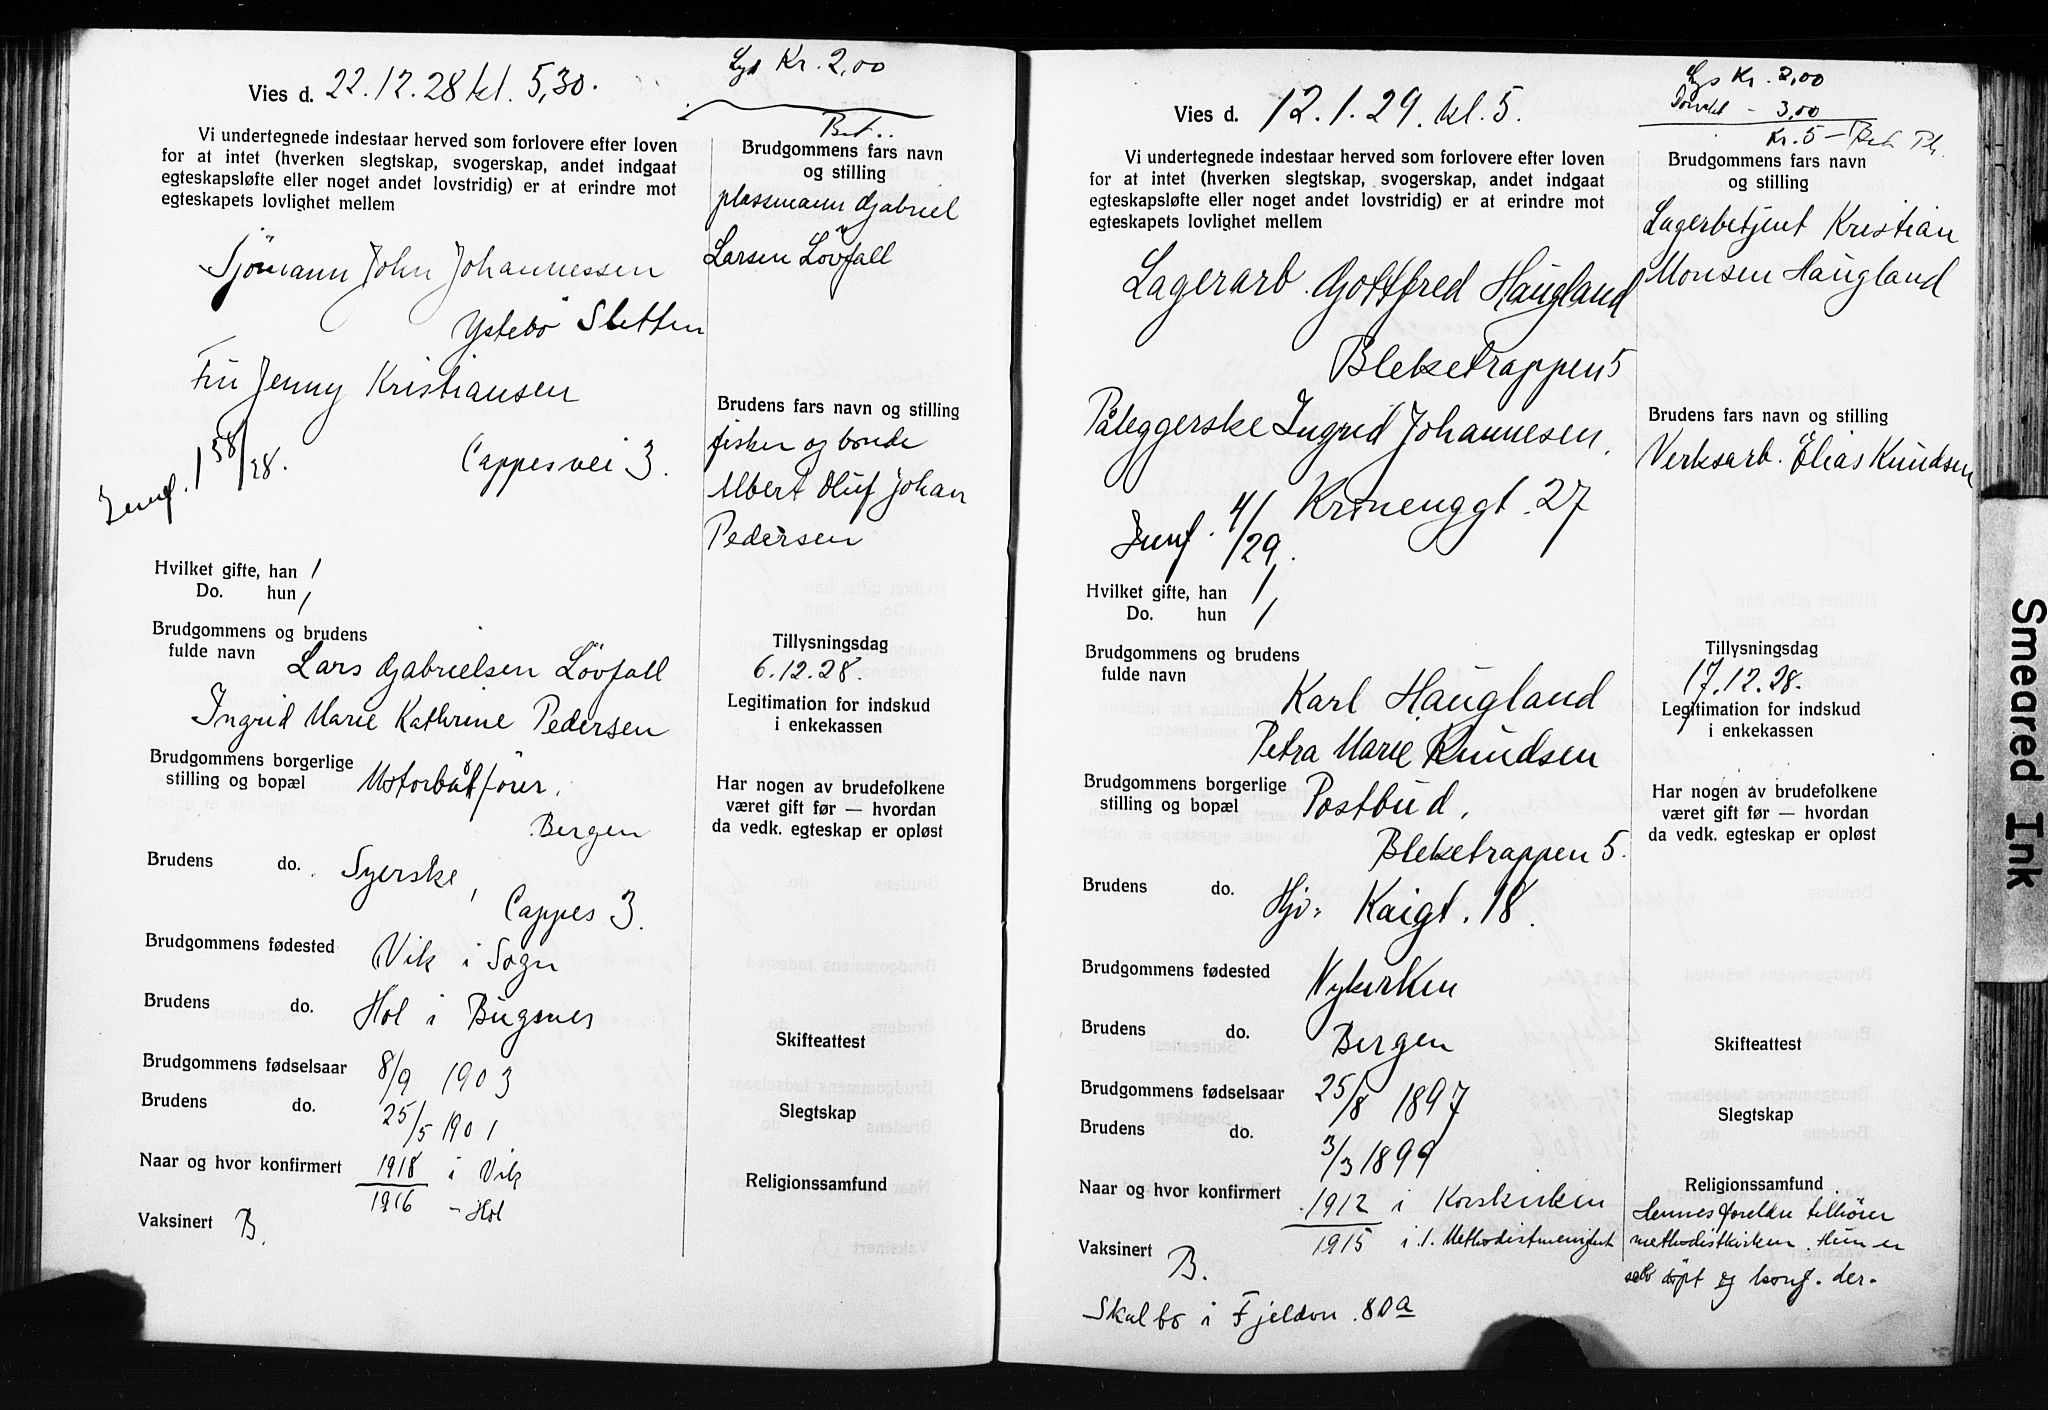 Vies d. 22.12.28 kl. 5,30.
Lys Kr. 2,00
Bet..
Vi undertegnede indestaar herved som forlovere efter loven
for at intet (hverken slegtskap, svogerskap, andet indgaat
egteskapsløfte eller noget andet lovstridig) er at erindre mot
egteskapets lovlighet mellem
Sjömann John Johannessen
Ystebö Sletten
Fru Jenny Kristiansen
Cappesvei 3.
/28.
Hvilket gifte, han 1
Do. hun 1
Brudgommens og brudens
fulde navn Lars Gabrielsen Lövfall
Ingrid Marie Kathrine Pedersen
Brudgommens borgerlige
stilling og bopæl Motorbåtförer,
Bergen
Brudens do. Syerske,
Cappes 3.
Brudgommens fødested Vik i Sogn
Brudens do. Hol i Bugsnes
Brudgommens fødselsaar 8/9 1903
Brudens do. 25/5 1901
Naar og hvor konfirmert 1918 i Vik
1916 - Hol
Vaksinert B.
Brudgommens fars navn
og stilling
plassmann Gabriel
Larsen Lövfall
Brudens fars navn og stilling
fisker og bonde
Albert Oluf Johan
Pedersen
Tillysningsdag
6.12.28.
Legitimation for indskud
i enkekassen
Har nogen av brudefolkene
været gift før — hvordan
da vedk. egteskap er opløst
Skifteattest
Slegtskap
Religionssamfund
Vies d. 12.1.29. kl. 5.
Lys Kr. 2,00
- 3,00
Kr. 5 - Bet
Vi undertegnede indestaar herved som forlovere efter loven
for at intet (hverken slegtskap, svogerskap, andet indgaat
egteskapsløfte eller noget andet lovstridig) er at erindre mot
egteskapets lovlighet mellem
Lagerarb. Gottfred Haugland
Bleketrappen 5
Påleggerske Ingrid Johannesen,
Kronenggt. 27
4/1 /29.
Hvilket gifte, han 1
Do. hun 1
Brudgommens og brudens
fulde navn
Karl Haugland
Petra Marie Knudsen
Brudgommens borgerlige
stilling og bopæl Postbud,
Bleketrappen 5.
Brudens do. Hjv. Kaigt. 18.
Brudgommens fødested Nykirken
Brudens do. Bergen
Brudgommens fødselsaar 25/8 1897
Brudens do. 3/3 1899
Naar og hvor konfirmert 1912 i Korskirken
1915 i 1. Methodistmenighet
Vaksinert B.
Skal bo i Fjeldvn. 80a
Brudgommens fars navn
og stilling
Lagerbetjent Kristian
Monsen Haugland
Brudens fars navn og stilling
Verksarb. Elias Knudsen
Tillysningsdag
17.12.28.
Legitimation for indskud
i enkekassen
Har nogen av brudefolkene
været gift før — hvordan
da vedk. egteskap er opløst
Skifteattest
Slegtskap
Religionssamfund
Hennes foreldre tilhörer
methodistkirken. Hun er
selv döpt og konf. der.
Smeared Ink